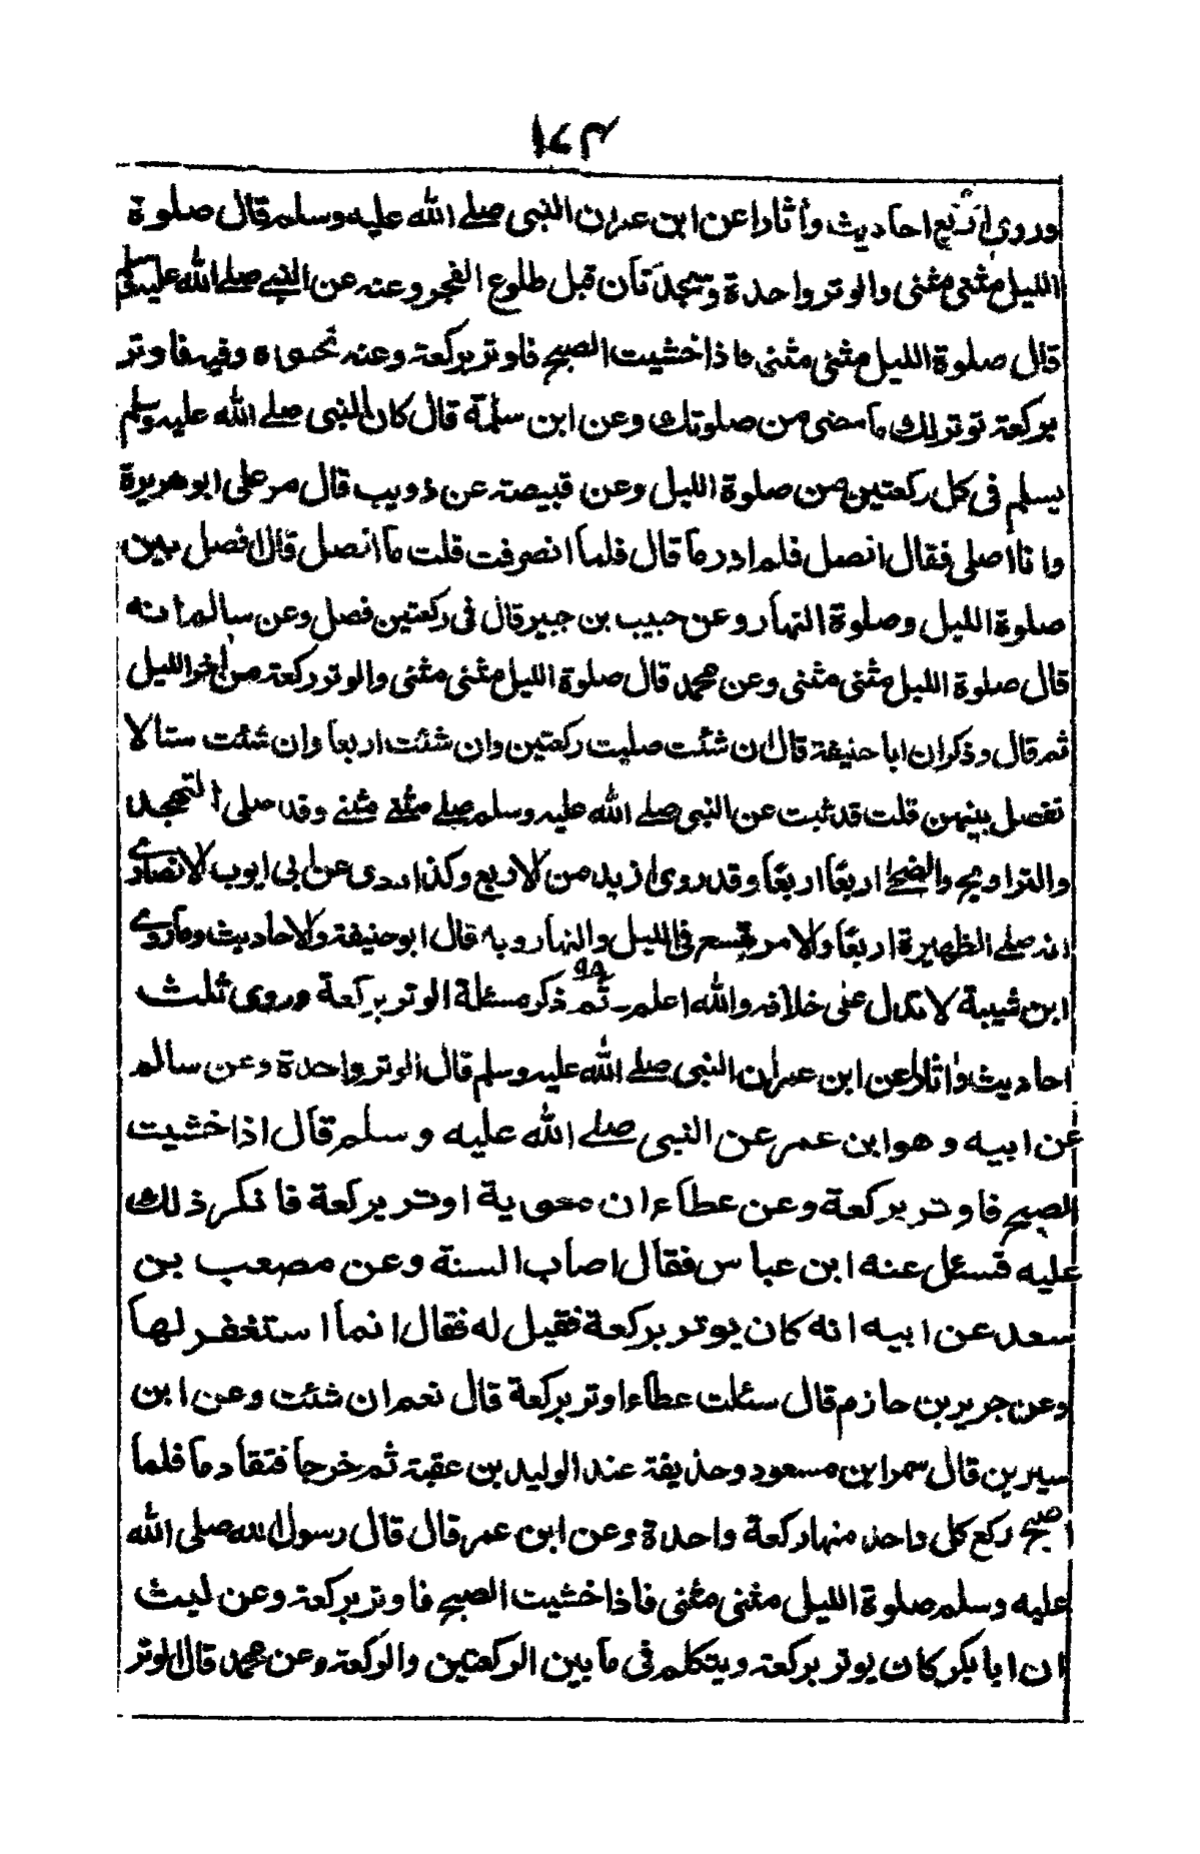 ١٧٣
وروى اربع احاديث وأثارا عن ابن عمران النبي صلے الله عليه وسلم قال صلوة
الليل مثنى مثنى والوتر واحدة وسجدتان قبل طلوع الفجر وعنه عن النبي صلے الله عليه وسلم
قال صلوة الليل مثنى مثنى فاذا خشيت الصبح فاوتر بركعة وعنه نحوه وفيه فاوتر
بركعة توترلك ما مضى من صلوتك وعن ابن سلمة قال كان النبي صلے الله عليه وسلم
يسلم فى كل ركعتين من صلوة الليل وعن قبيصة عن ذويب قال مر على ابو هريرة
وانا اصلى فقال انصل فلم ادر ما قال فلما انصرفت قلت ما انصل قال افصل بين
صلوة الليل وصلوة النهار وعن حبيب بن جبير قال فى ركعتين فصل وعن سالم انه
قال صلوة الليل مثنى مثنى وعن محمد قال صلوة الليل مثنى مثنى والوتر ركعة من اخر الليل
ثم قال وذكر ان ابا حنيفة قال ان شئت صليت ركعتين وان شئت اربعا وان شئت ستا لا
تفصل بينهن قلت قد ثبت عن النبي صلے الله عليه وسلم صلے مثنے مثنے وقد صلى التهجد
والتراويح والضحے اربعا اربعا وقد روى ازيد من الاربع وكذا روى عن ابى ايوب الانصارے
انه صلے الظهيرة اربعا والامر متسع فى الليل والنهار وبه قال ابو حنيفة والاحاديث وماروے
ابن شيبة لا تدل على خلافه والله اعلم ـ ثم ذكر مسئلة الوتر بركعة وروى ثلث
احاديث واثار اعن ابن عمران النبي صلے الله عليه وسلم قال الوتر واحدة وعن سالم
عن ابيه وهو ابن عمر عن النبي صلے الله عليه وسلم قال اذا خشيت
الصبح فاوتر بركعة وعن عطاء ان معوية اوتر بركعة فانكر ذلك
عليه فسئل عنه ابن عباس فقال اصاب السنة وعن مصعب بن
سعد عن ابيه انه كان يوتر بركعة فقيل له فقال انما استغفر لها
وعن جرير بن حازم قال سئلت عطاء اوتر بركعة قال نعم ان شئت وعن ابن
سيرين قال سمر ابن مسعود وحذيفة عند الوليد بن عقبة ثم خرجا فتقادما فلما
اصبح ركع كل واحد منها ركعة واحدة وعن ابن عمر قال قال رسول الله صلى الله
عليه وسلم صلوة الليل مثنى مثنى فاذا خشيت الصبح فاوتر بركعة وعن ليث
ان ابا بكر كان يوتر بركعة ويتكلم فى ما بين الركعتين والركعة وعن محمد قال الوتر